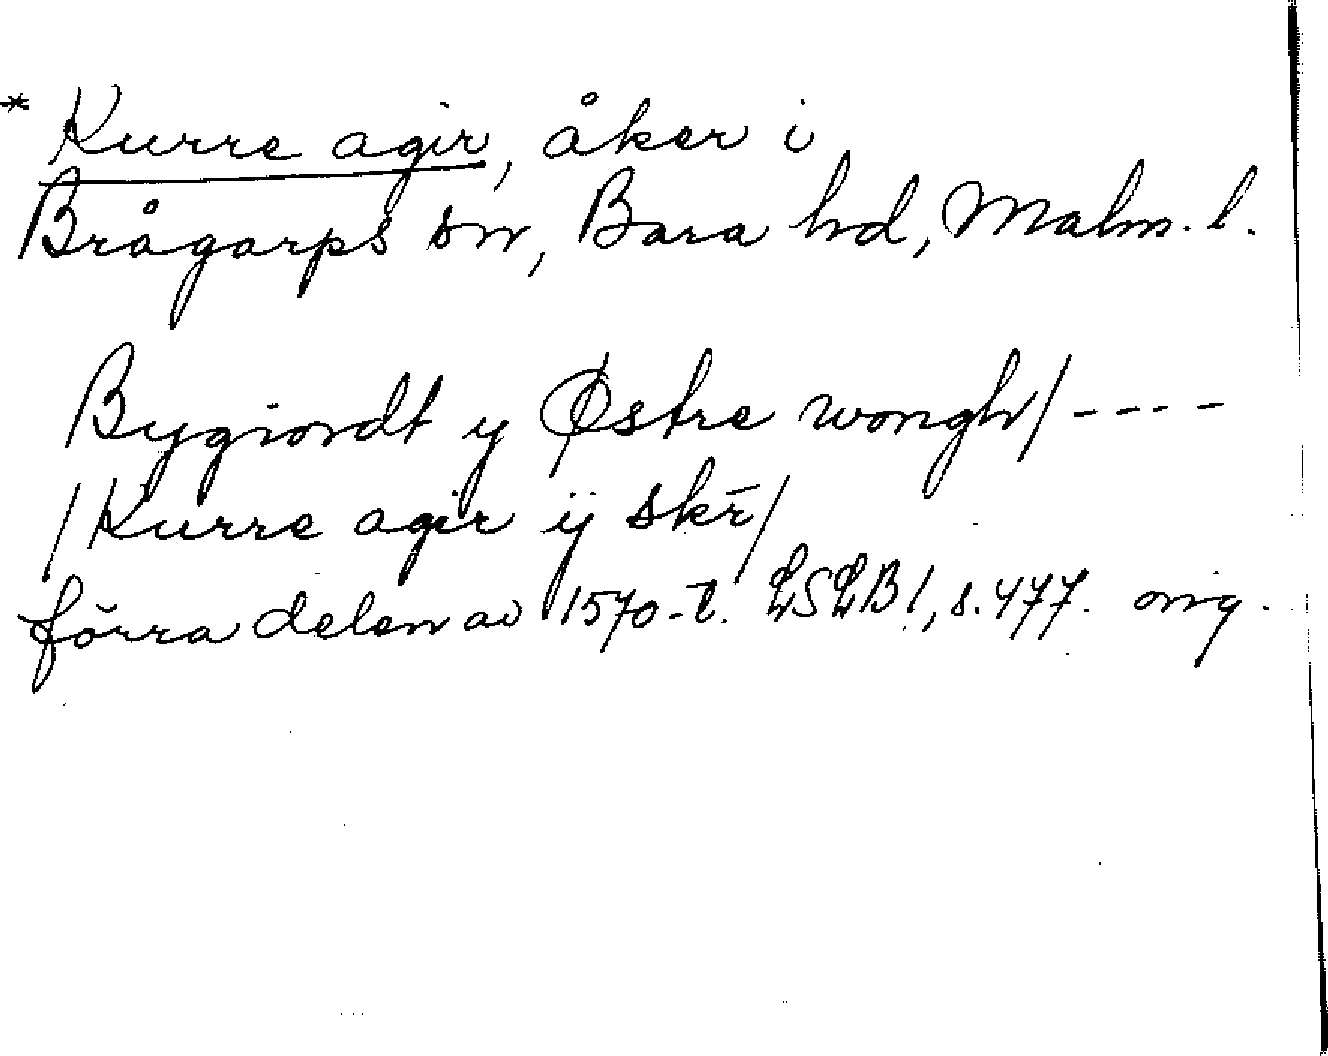 * Kurre agir, åker i
Brågarps sn, Bara hd, Malm. l.
Bygiordt y Østre wongh/----
/Kurre agir ij skr̄/
förra delen av 1570-t. LSLB1, s. 477. orig.